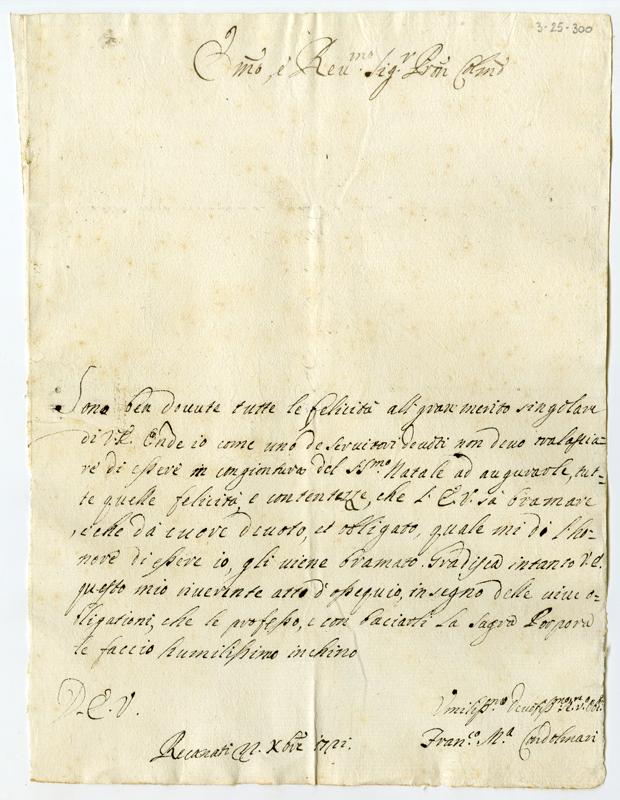 3-25-300
Jmo, e Reu.mo Sig.r Prõn Colmo
Sono ben douute tutte le felicità all gran merito singolare
di V.E. Onde io come uno de seruitori deuoti non deuo tralascia-
re di essere in congiuntura del SS.mo Natale ad augurarle, tut-
te quelle felicità, e contentezze, che l'E.V. sà bramare
, e che da cuore deuoto, et obligato, quale mi dò l'ho-
nore di essere io, gli uiene bramato. Gradisca intanto V.E.
questo mio riuerente atto d'ossequio, in segno delle uiue o-
bligationi, che le professo, e con baciarli la sagra Porpora
le faccio humilissimo inchino
D. E. V.
Vmiliss.mo Deuotiss.mo
Recanati Xbre
Fran.co M.a Condolmari